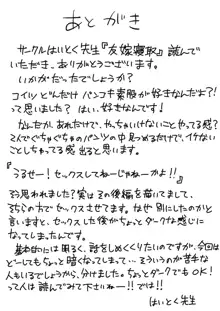 あとがき
サークルはいとく先生『友嫁寝取』読んで
いただき、ありがとうございます。
いかがだったでしょうか?
コイツ どんだけ パンコキ素股が好きなんだよ?!
って思いました? はい、好きなんです!
なんだか、あれだけで、やっちゃいけないことやってる感?
2人でぐちゃぐちゃのパンツの中見つめるだけで、イケない
ことしちゃってる感 出ると思います。
『うるせー! セックスしてねーじゃねーかよ!!』
そう思われました? 実は この後編も描いてまして、
そちらの方で セックスさせてます。なぜ 別にしたのかと
言いますと、セックスした後がちょっとダークな感じに
なってしまたんです。
基本的には明るく、話をしめくくりたいのですが、今回は
どーしてもちょっと暗くなってしまって…そういうのが苦手な
人もいるでしょうから、分けました。ちょっとダークでも OK!
って人は読んでみて下さいねー!! では!!
はいとく先生